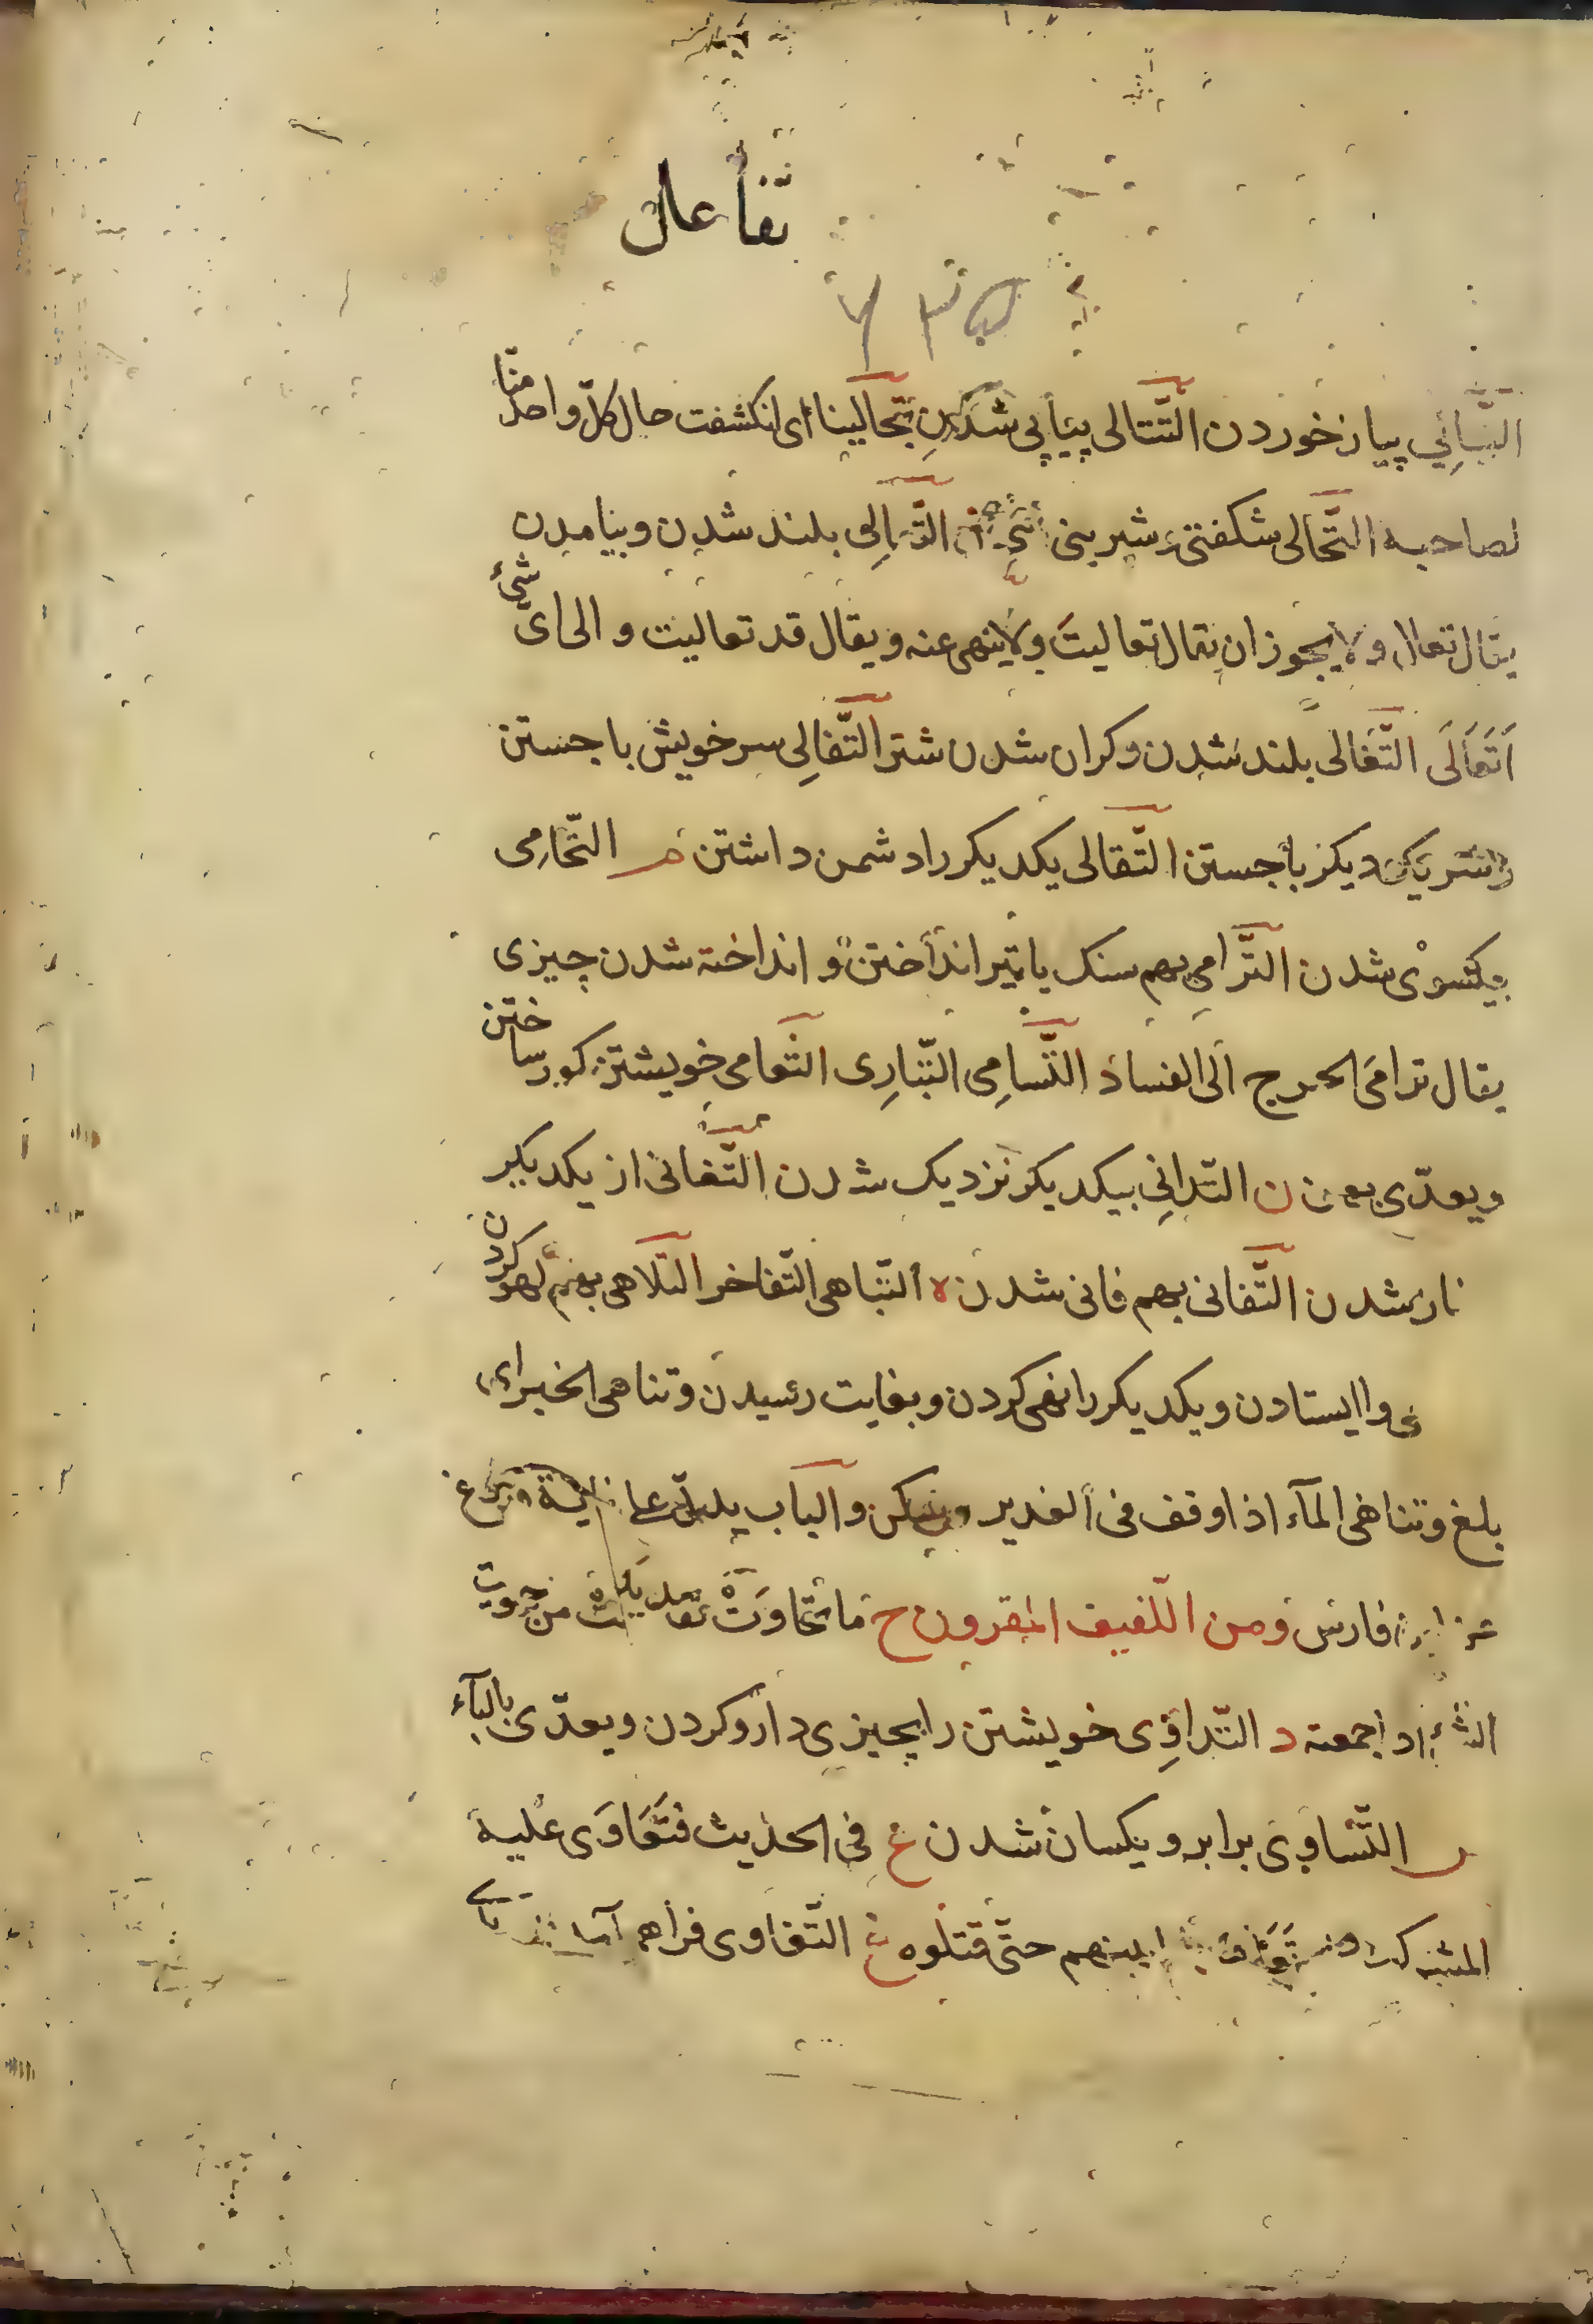 تفاعل
پیاز خوردن التتالی پیاپی شدن تجالینا ای انکشفت حال کلّ واحد منّا
لصاحبه التّحالی شکفتی و شیرینی التّعالِی بلند شدن وبیامدن
یقال تعال ولا یجوز ان یقال تعالیتَ ولا ینهی عنه ویقال قد تعالیت والی ایّ شیٔ
اَتَعَالَی التّغالی بلند شدن وکران شدن شتر التّفالِی سر خویش با جستن
دیکر باجستن التّقالی یکدیکر را دشمن داشتن م التّحامِی
بیکسوی شدن التّرامِی بهم سنک یا تیر انداختن و انداخته شدن چیزی
یقال ترامی الجرح الی الفساد التّسامِی التّبارِی التّعامی خویشتن کور ساختن
ویعدّی بعن ن التّدانِی بیکدیکر نزدیک شدن التّغانی از یکدیکر
شدن التّفانی بهم فانی شدن ه التّباهی التّفاخر التّلاهی بهم لهو کردن
واایستادن ویکدیکر را نهی کردن وبغایت رسیدن وتناهی الخبر ای
بلغ وتناهی المآء اذا وقف فی الغدیر وسکن والباب یدلّ علی
فارس ومن اللّفیف المقرون ح من حویت
اذا جمعته د التّداوِی خویشتن را بچیزی دارو کردن ویعدّی بالبآء
س التّساوِی برابر ویکسان شدن ع فی الحدیث فتَعَاوَی علیه
حتّی قتلوه غ التّغاوی فراهم